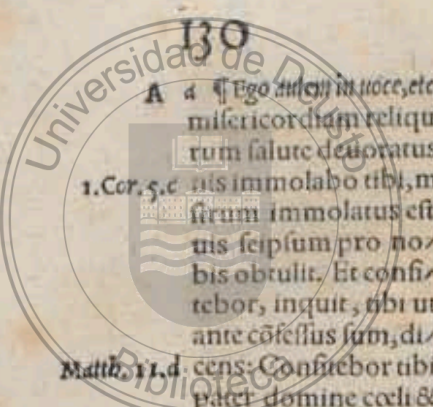 130
A a ¶ Ego autem in uoce, etc
misericordiam reliqu
rum salute deuoratus
1.Cor.5.c uis immolabo tibi, m
strum immolatus est
uis seipsum pro no/
bis obtulit. Et confi/
tebor, inquit, tibi ut
ante cõfessus sum, di/
Matth.11.d cens: Confitebor tibi
pater domine cœli &
Universidad de Deusto
Biblioteca